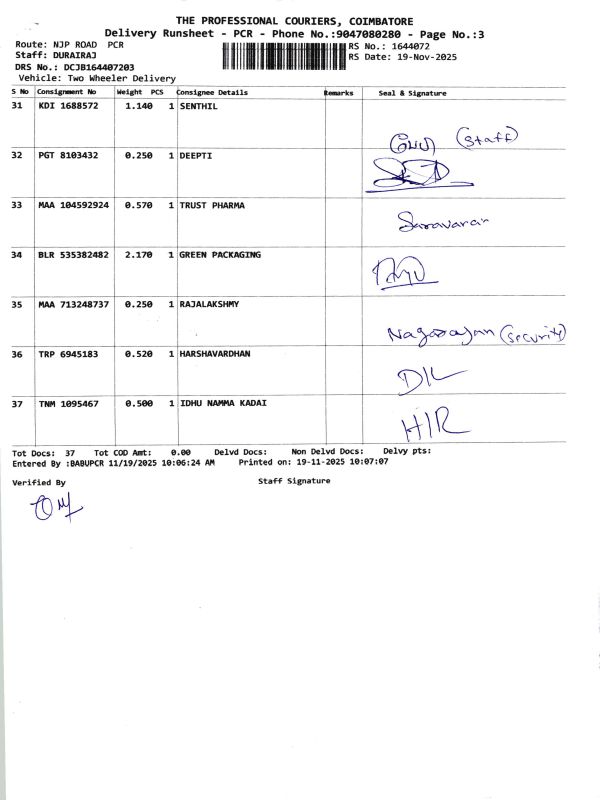 THE PROFESSIONAL COURIERS, COIMBATORE
Delivery Runsheet - PCR - Phone No.:9047080280 - Page No.:3
Route: NJP ROAD PCR RS No.: 1644072
Staff: DURAIRAJ RS Date: 19-Nov-2025
DRS No.: DCJB164407203
Vehicle: Two Wheeler Delivery
S No Consignment No Weight PCS Consignee Details Remarks Seal & Signature
31 KDI 1688572 1.140 1 SENTHIL
(Staff)
32 PGT 8103432 0.250 1 DEEPTI
33 MAA 104592924 0.570 1 TRUST PHARMA
Saravanan
34 BLR 535382482 2.170 1 GREEN PACKAGING
35 MAA 713248737 0.250 1 RAJALAKSHMY
Nagarajan (Security)
36 TRP 6945183 0.520 1 HARSHAVARDHAN
37 TNM 1095467 0.500 1 IDHU NAMMA KADAI
Tot Docs: 37 Tot COD Amt: 0.00 Delvd Docs: Non Delvd Docs: Delvy pts:
Entered By :BABUPCR 11/19/2025 10:06:24 AM Printed on: 19-11-2025 10:07:07
Verified By Staff Signature